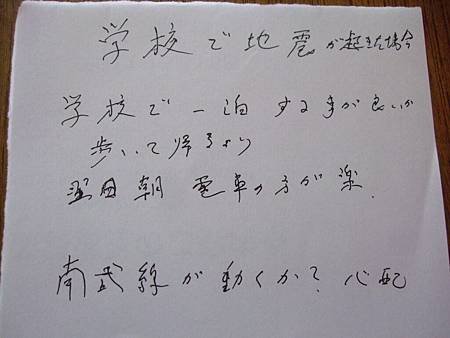 学校で地震が起きた場合
学校で一泊する事が良いか
歩いて帰るより
翌日朝電車の方が楽.
南武線が動くか?心配